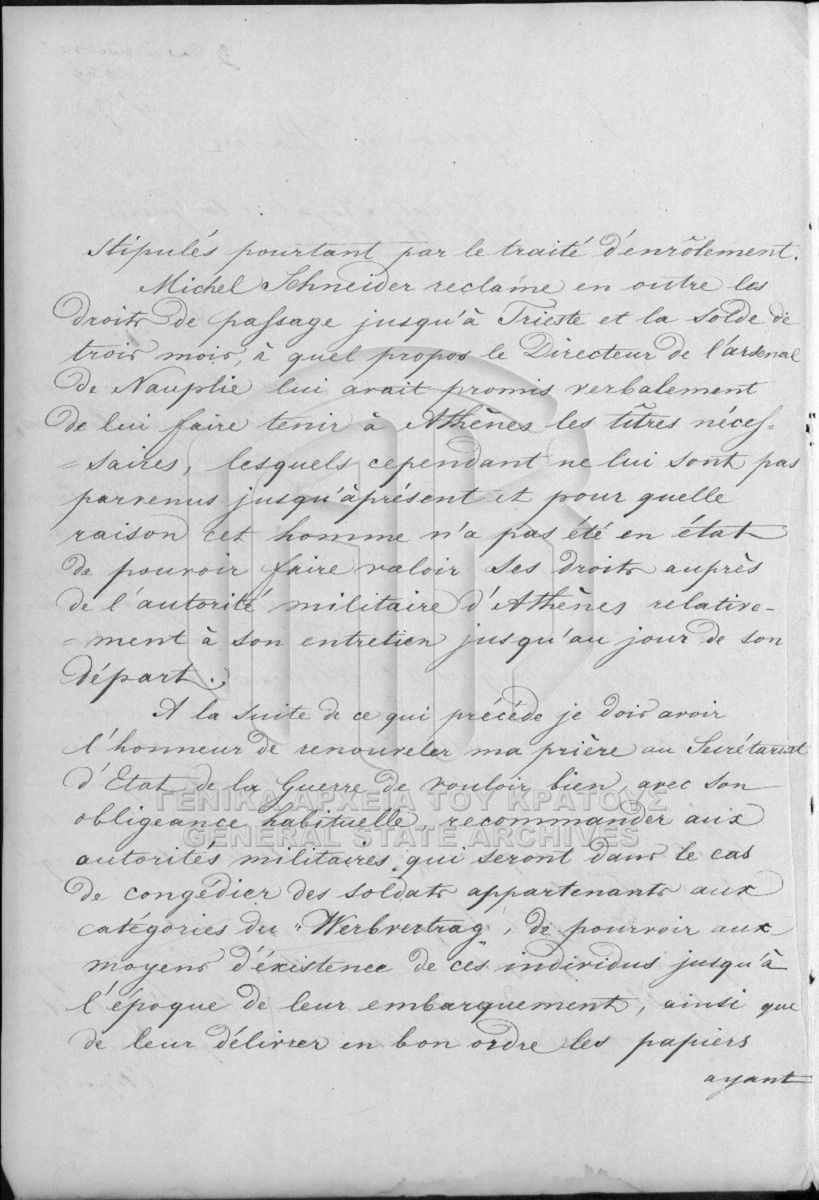 stipulés pourtant par le traité d'enrôlement.
Michel Schneider reclame en outre les
droits de passage jusqu'à Trieste et la solde de
trois mois, à quel propos le Directeur de l'arsenal
de Nauplie lui avait promis verbalement
de lui faire tenir à Athènes les titres néces-
-saires, lesquels cependant ne lui sont pas
parvenus jusqu'àprésent et pour quelle
raison cet homme n'a pas été en état
de pouvoir faire valoir ses droits auprès
de l'autorité militaire d'Athènes relative-
-ment à son entretien jusqu'au jour de son
départ.
A la suite de ce qui précède je dois avoir
l'honneur de renouveler ma prière au Secrétariat
d'Etat de la Guerre de vouloir bien, avec son
ΓΕΝΙΚΑ ΑΡΧΕΙΑ ΤΟΥ ΚΡΑΤΟΥΣ
obligeance habituelle, recommander aux
GENERAL STATE ARCHIVES
autorités militaires qui seront dans le cas
de congédier des soldats appartenants aux
catégories du „Werbvertrag", de pourvoir aux
moyens d'éxistence de ces individus jusqu'à
l'époque de leur embarquement, ainsi que
de leur délivrer en bon ordre les papiers
ayant